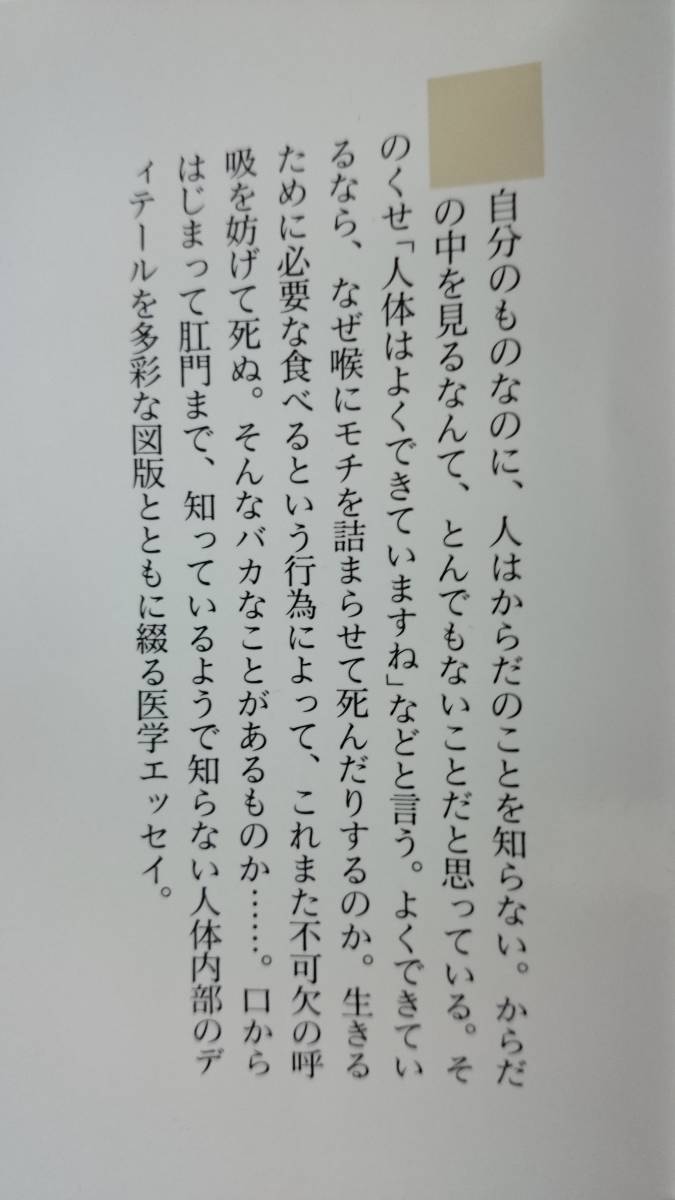 自分のものなのに、人はからだのことを知らない。からだ
の中を見るなんて、とんでもないことだと思っている。そ
のくせ「人体はよくできていますね」などと言う。よくできてい
るなら、なぜ喉にモチを詰まらせて死んだりするのか。生きる
ために必要な食べるという行為によって、これまた不可欠の呼
吸を妨げて死ぬ。そんなバカなことがあるものか……。口から
はじまって肛門まで、知っているようで知らない人体内部のデ
ィテールを多彩な図版とともに綴る医学エッセイ。